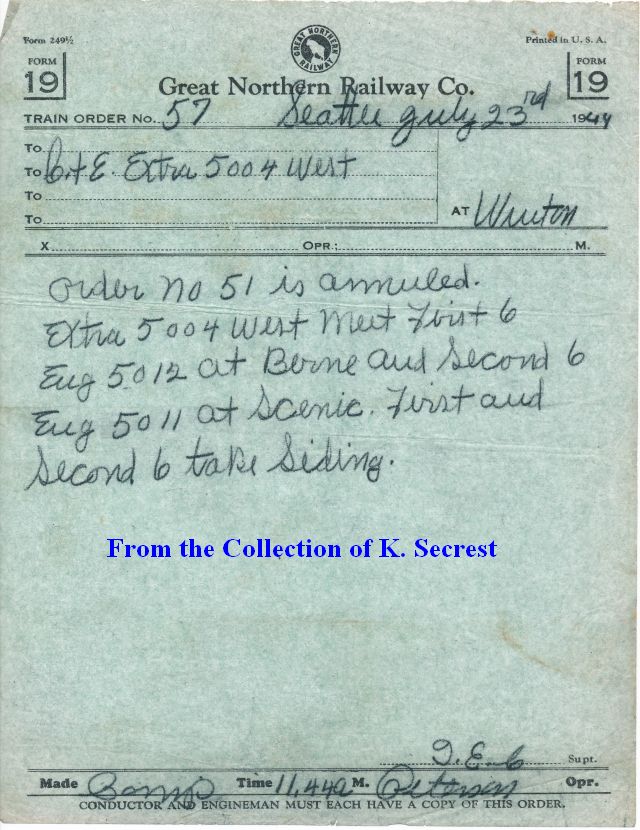 Form 249½
Printed in U. S. A.
FORM
19
GREAT NORTHERN RAILWAY
FORM
19
Great Northern Railway Co.
TRAIN ORDER No. 57 Seattle July 23rd 1944
To
To C+E. Extra 5004 West
To
To
AT Winton
X OPR.: M.
Order No 51 is annuled.
Extra 5004 West Meet First 6
Eng 5012 at Berne and Second 6
Eng 5011 at Scenic. First and
Second 6 take Siding.
From the Collection of K. Secrest
Supt.
Made Time 11,44a M. Peterson Opr.
CONDUCTOR AND ENGINEMAN MUST EACH HAVE A COPY OF THIS ORDER.